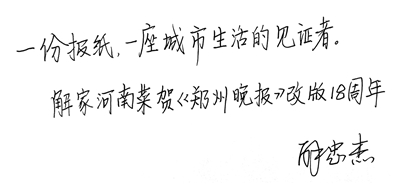 一份报纸,一座城市生活的见证者。
解家河南菜贺《郑州晚报》改版18周年